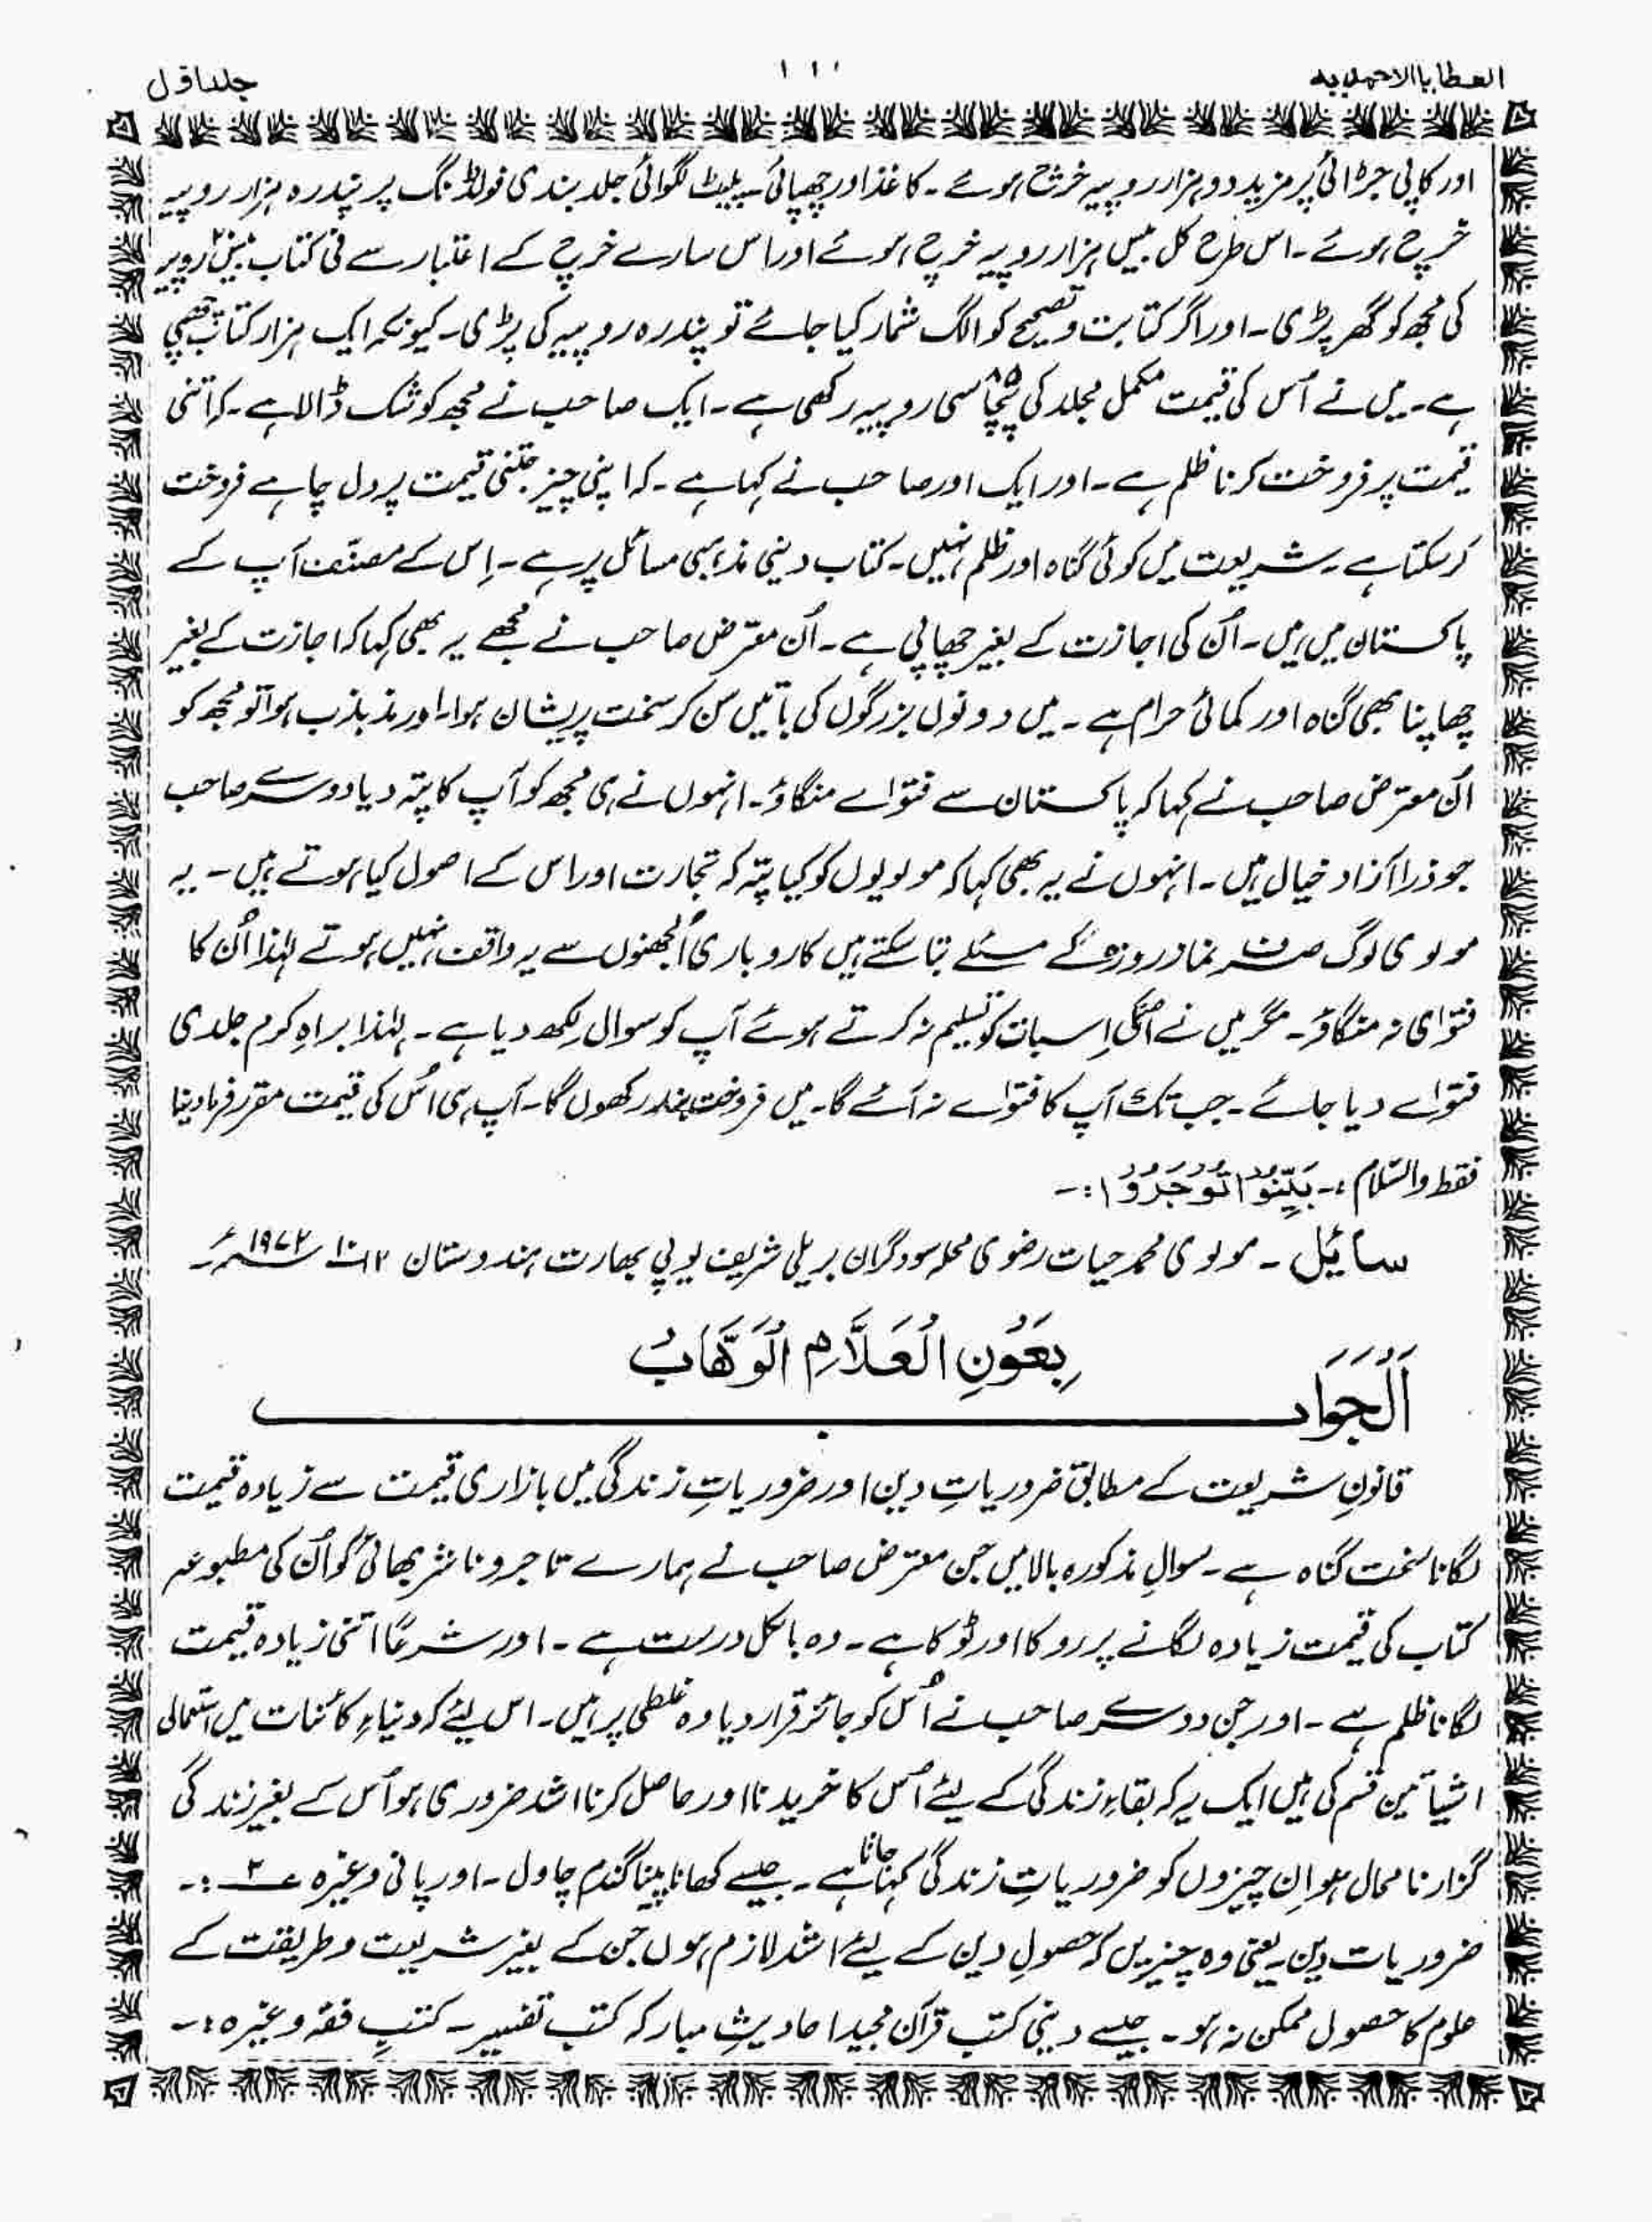 العطایا الاحمدیہ
۱۱۰
جلد اوّل
اور کاپی جڑائی پر مزید دو ہزار روپیہ خرچ ہوئے۔ کاغذ اور چھپائی۔ پلیٹ لگوائی جلد بندی فولڈنگ پر پندرہ ہزار روپیہ
خرچ ہوئے۔ اس طرح کل بیس ہزار روپیہ خرچ ہوئے اور اس سارے خرچ کے اعتبار سے فی کتاب بیس۲۰ روپیہ
کی مجھ کو گھر پڑی۔ اور اگر کتابت و تصحیح کو الگ شمار کیا جائے تو پندرہ روپیہ کی پڑی۔ کیونکہ ایک ہزار کتاب چھپی
ہے۔ میں نے اُس کی قیمت مکمل مجلد کی پچاسی۸۵ روپیہ رکھی ہے۔ ایک صاحب نے مجھ کو شک ڈالا ہے۔ کہ اتنی
قیمت پر فروخت کرنا ظلم ہے۔ اور ایک اور صاحب نے کہا ہے۔ کہ اپنی چیز جتنی قیمت پر دل چاہے فروخت
کر سکتا ہے۔ شریعت میں کوئی گناہ اور ظلم نہیں۔ کتاب دینی مذہبی مسائل پر ہے۔ اِس کے مصنّف آپ کے
پاکستان میں ہیں۔ اُن کی اجازت کے بغیر چھاپی ہے۔ اُن معترض صاحب نے مجھے یہ بھی کہا کہ اجازت کے بغیر
چھاپنا بھی گناہ اور کمائی حرام ہے۔ میں دونوں بزرگوں کی باتیں سُن کر سخت پریشان ہوا۔ اور مذبذب ہوا تو مجھ کو
اُن معترض صاحب نے کہا کہ پاکستان سے فتوٰے منگاؤ۔ انہوں نے ہی مجھ کو آپ کا پتہ دیا دوسرے صاحب
جو ذرا آزاد خیال ہیں۔ انہوں نے یہ بھی کہا کہ مولویوں کو کیا پتہ کہ تجارت اور اس کے اصول کیا ہوتے ہیں۔ یہ
مولوی لوگ صرف نماز روزہ کے مسئلے بتا سکتے ہیں کاروباری اُلجھنوں سے یہ واقف نہیں ہوتے لہٰذا اُن کا
فتوٰی نہ منگاؤ۔ مگر میں نے اُنکی اِس بات کو تسلیم نہ کرتے ہوئے آپ کو سوال لکھ دیا ہے۔ لہٰذا براہِ کرم جلدی
فتوٰے دیا جائے۔ جب تک آپ کا فتوٰے نہ آئے گا۔ میں فروخت بند رکھوں گا۔ آپ ہی اُس کی قیمت مقرر فرما دینا
فقط والسّلام :۔ بَیِّنُوْا تُوْجَرُوْا :۔
سائیل ۔ مولوی محمد حیات رضوی محلہ سوداگران بریلی شریف یوپی بھارت ہندوستان ۱۰-۱۲ ۱۹۷۲ء
بِعَوْنِ الْعَلَّامِ الْوَهَّابُ
اَلْجَوَاب
قانونِ شریعت کے مطابق ضروریاتِ دین اور ضروریاتِ زندگی میں بازاری قیمت سے زیادہ قیمت
لگانا سخت گناہ ہے۔ سوالِ مذکورہ بالا میں جن معترض صاحب نے ہمارے تاجر و ناشر بھائی کو اُن کی مطبوعہ
کتاب کی قیمت زیادہ لگانے پر روکا اور ٹوکا ہے۔ وہ بالکل درست ہے۔ اور شرعًا اتنی زیادہ قیمت
لگانا ظلم ہے۔ اور جن دوسرے صاحب نے اُس کو جائز قرار دیا وہ غلطی پر ہیں۔ اس لیئے کہ دنیاءِ کائنات میں استعمالی
اشیا تین قسم کی ہیں ایک یہ کہ بقاءِ زندگی کے لیئے اُس کا خریدنا اور حاصل کرنا اشد ضروری ہو اُس کے بغیر زندگی
گزارنا محال ہو اِن چیزوں کو ضروریاتِ زندگی کہا جاتا ہے۔ جیسے کھانا پینا گندم چاول۔ اور پانی وغیرہ ۲؎ :۔
ضروریات دین۔ یعنی وہ چیزیں کہ حصولِ دین کے لیئے اشد لازم ہوں جن کے بغیر شریعت و طریقت کے
علوم کا حصول ممکن نہ ہو۔ جیسے دینی کتب قرآن مجید احادیثِ مبارکہ کتب تفسیر۔ کتبِ فقہ وغیرہ :۔